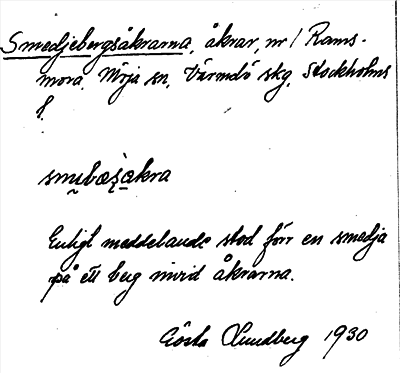 Smedjebergsåkrarna, åkrar, nr 1 Rams-
mora. Möja sn, Värmdö skg. Stockholms
l.
Enligt meddelande stod förr en smedja
på ett berg invid åkrarna.
Gösta Lundberg 1930